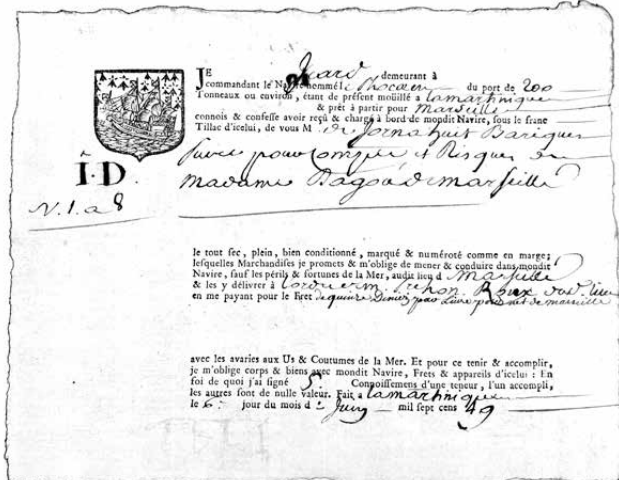 JE Giard demeurant à
commandant le Navire nommé le Phocéen du port de 200
Tonneaux ou environ, étant de présent moüillé a Lamartinique
& prêt à partir pour Marseille
connois & confesse avoir reçû & chargé à bord de mondit Navire, sous le franc
Tillac d'icelui, de vous M de Jorna huit Bariques
Sucre pour Compte et Risques de
Madame Dagoû de marseille
I·D
N. 1. a 8
le tout sec, plein, bien conditionné, marqué & numéroté comme en marge;
lesquelles Marchandises je promets & m'oblige de mener & conduire dans mondit
Navire, sauf les périls & fortunes de la Mer, audit lieu d Marseille
& les y délivrer à lordre Roux
en me payant pour le Fret de quinze Deniers par Livre poids net de marseille
avec les avaries aux Us & Coutumes de la Mer. Et pour ce tenir & accomplir,
je m'oblige corps & biens avec mondit Navire, Frets & appareils d'icelui : En
foi de quoi j'ai signé 5. Connoissemens d'une teneur, l'un accompli,
les autres sont de nulle valeur. Fait a Lamartinique
le 6: jour du mois de Juin mil sept cens 49